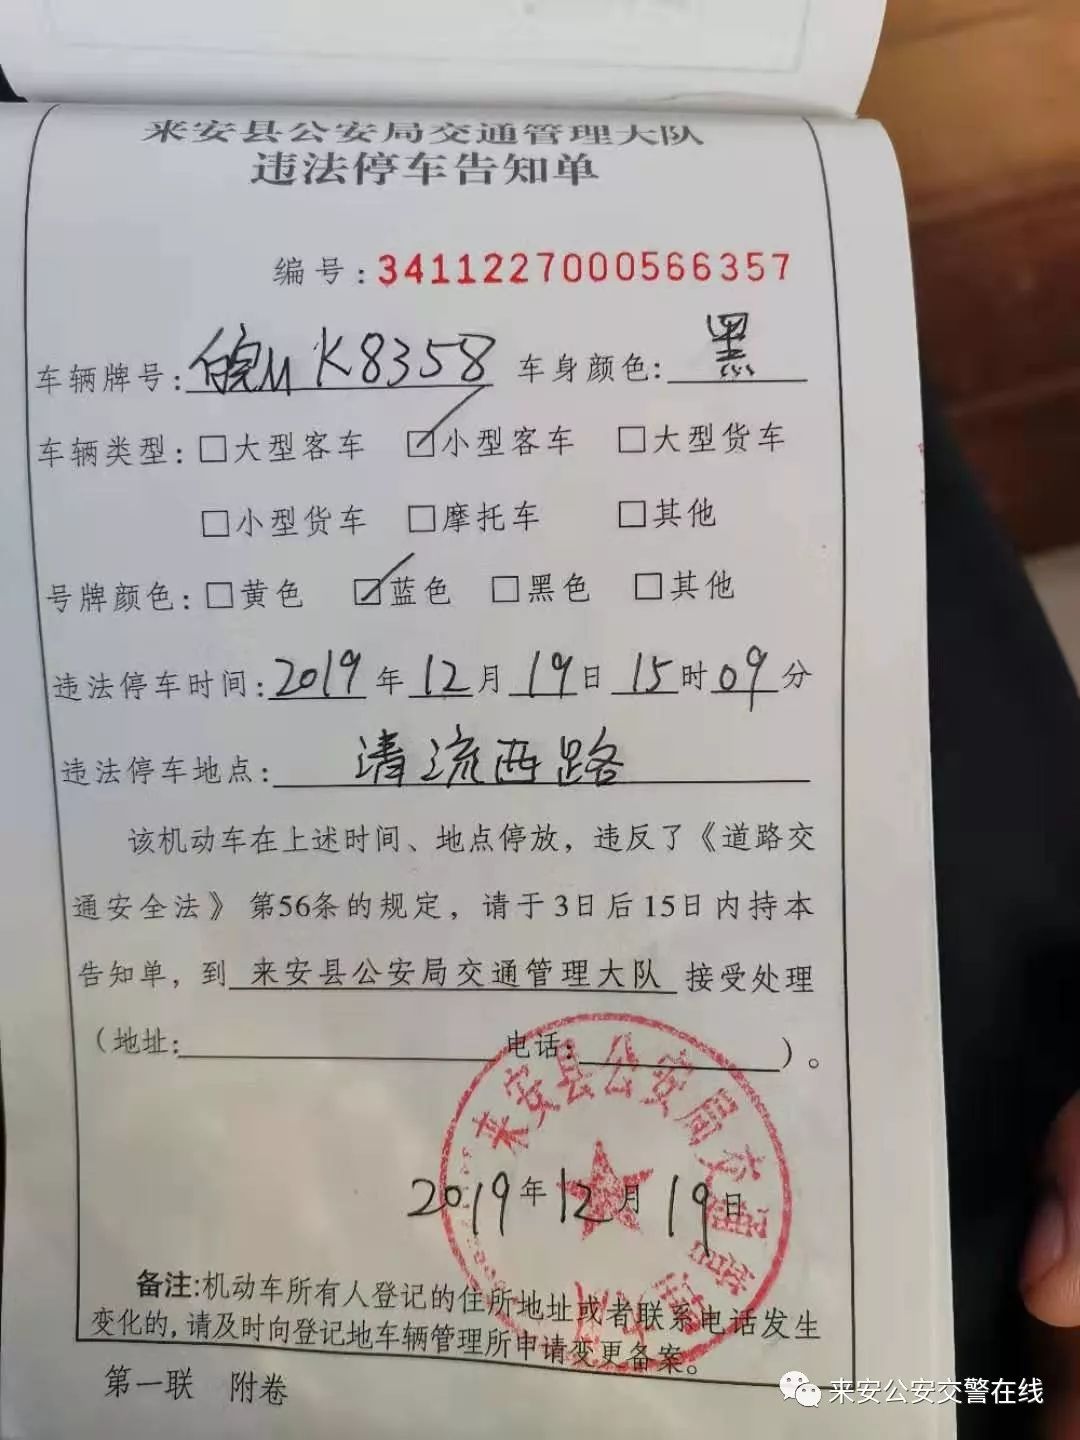 来安县公安局交通管理大队
违法停车告知单
编号：3411227000566357
车辆牌号：皖M K8358 车身颜色：黑
车辆类型：□大型客车 ☑小型客车 □大型货车
□小型货车 □摩托车 □其他
号牌颜色：□黄色 ☑蓝色 □黑色 □其他
违法停车时间：2019年12月19日15时09分
违法停车地点：清流西路
该机动车在上述时间、地点停放，违反了《道路交
通安全法》第56条的规定，请于3日后15日内持本
告知单，到 来安县公安局交通管理大队 接受处理
（地址： 电话： ）。
来安县公安局交通管理大队
2019年12月19日
备注：机动车所有人登记的住所地址或者联系电话发生
变化的，请及时向登记地车辆管理所申请变更备案。
第一联 附卷
来安公安交警在线